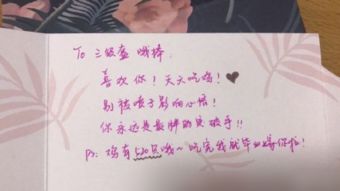 To 三级盔 哦棒:
喜欢你！天天吃鸡！
别被喷子影响心情！
你永远是最胖的突破手!!
Ps: 鸡有520只哦~ 吃完我就毕业嫁你啦！